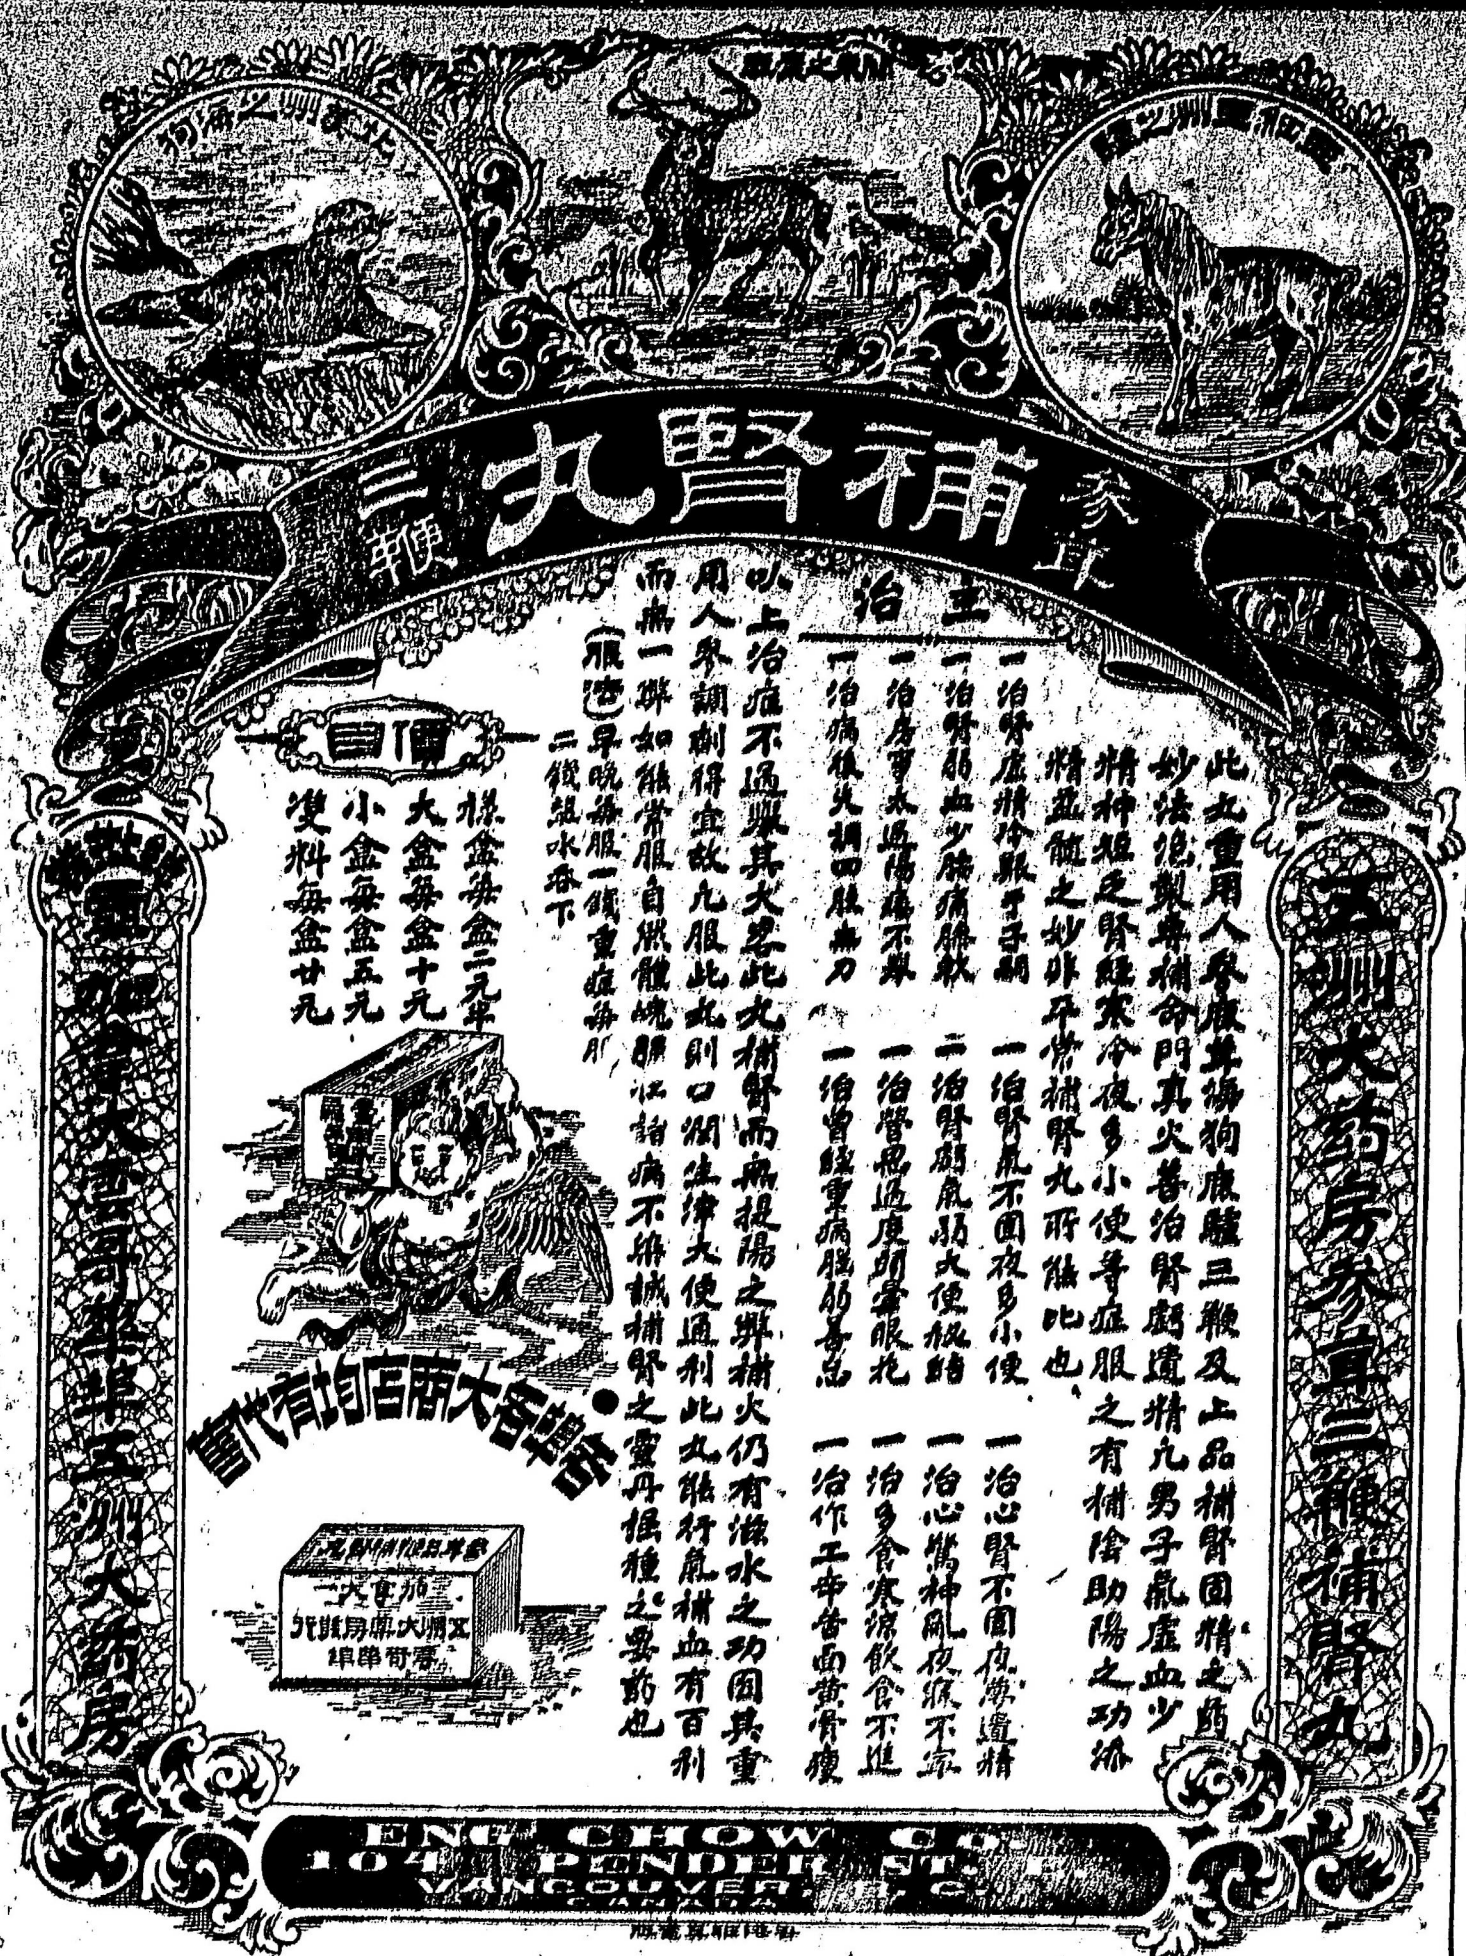 北美州之海狗
參茸
補腎丸
三鞭
五州大药房参茸三鞭補腎丸
此丸重用人參鹿茸海狗鹿驢三鞭及上品補腎固精之药
妙法泡製專補命門真火善治腎虧遺精凡男子氣虛血少
精神短乏腎經寒冷夜多小便等症服之有補陰助陽之功添
精益髓之妙非平常補腎丸所能比也
主治
一治腎虛精冷艱于子嗣
一治腎氣不固夜多小便
一治心腎不固夜夢遺精
一治腎弱血少腰痛脚軟
一治腎弱氣弱大便秘結
一治心驚神亂夜寐不寧
一治房事太過陽痿不舉
一治營思過度頭暈眼花
一治多食寒涼飲食不進
一治病後失調四肢無力
一治曾經重病腦弱善忘
一治作工辛苦面黄骨瘦
以上治症不過舉其大畧此丸補腎而無提陽之弊補火仍有滋水之功因其重
用人參調劑得宜故凡服此丸則口潤生津大便通利此丸能行氣補血有百利
而無一弊如能常服自然體魄强壮諸病不生誠補腎之靈丹種之要药也
(服法)早晚每服一錢重症每服
二錢滚水吞下
價目
樣盒每盒二元半
大盒每盒十元
小盒每盒五元
雙料每盒廿元
各埠各大商店均有代售
加拿大
五洲大藥房監製
雲哥華埠
加拿大雲哥華埠五洲大药房
ENG CHOW CO.
104 PENDER ST. E.
VANCOUVER, B. C.
CANADA